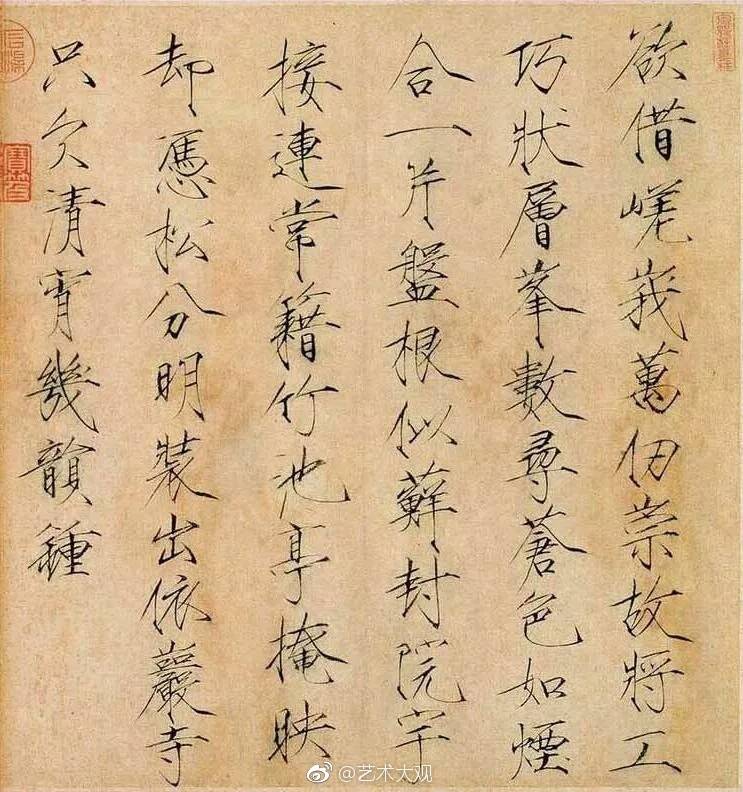 欲借嵯峨萬仞崇故將工
巧狀層峯數尋蒼色如煙
合一片盤根似蘚封院宇
接連常籍竹池亭掩映
却憑松分明裝出依巖寺
只欠清宵幾韻鍾
@艺术大观